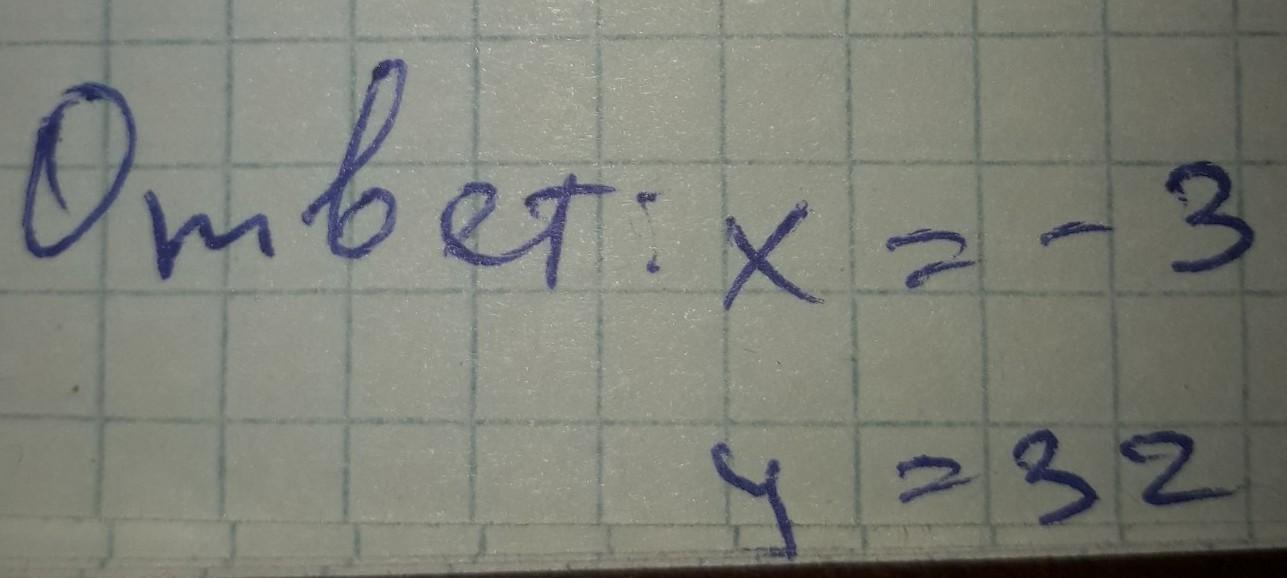 Ответ: x = - 3
y = 32